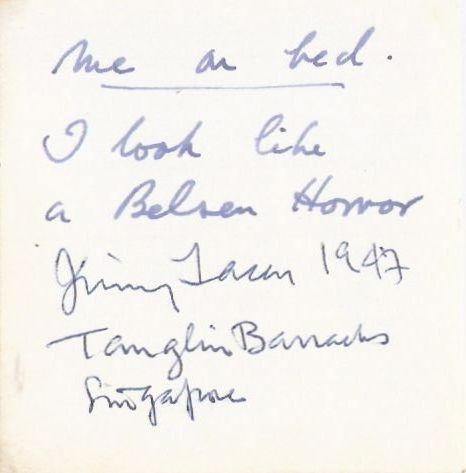 Me on bed.
I look like
a Belsen Horror
Jimmy 1947
Tanglin Barracks
Singapore